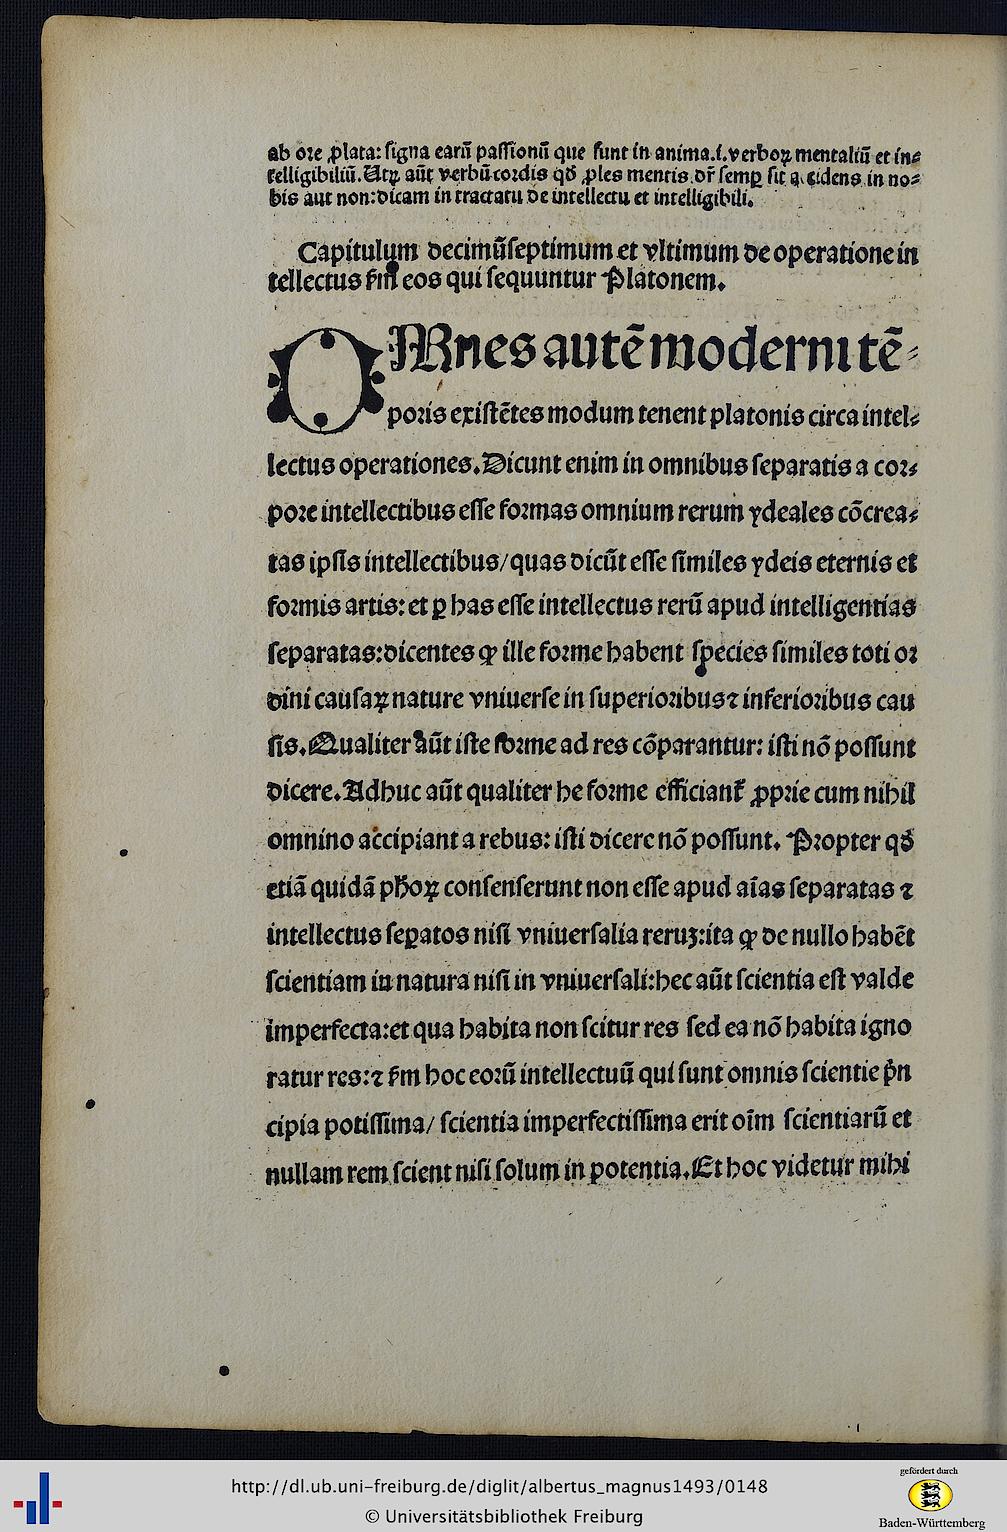 ab ore ꝓlata: signa earū passionū que sunt in anima.i.verboꝝ mentaliū et in⸗
telligibiliū. Utꝝ aūt verbū cordis qđ ꝓles mentis dr̄ semꝑ sit accidens in no⸗
bis aut non: dicam in tractatu de intellectu et intelligibili.
Capitulum decimūseptimum et vltimum de operatione in
tellectus ẜm eos qui sequuntur Platonem.
OMnes autē moderni tē⸗
poris existētes modum tenent platonis circa intel⸗
lectus operationes. Dicunt enim in omnibus separatis a cor⸗
pore intellectibus esse formas omnium rerum ydeales cōcrea⸗
tas ipsis intellectibus/ quas dicūt esse similes ydeis eternis et
formis artis: et ꝑ has esse intellectus rerū apud intelligentias
separatas: dicentes ꝙ ille forme habent species similes toti or
dini causaꝝ nature vniuerse in superioribus ⁊ inferioribus cau
sis. Qualiter aūt iste forme ad res cōparantur: isti nō possunt
dicere. Adhuc aūt qualiter he forme efficianť ꝓprie cum nihil
omnino accipiant a rebus: isti dicere nō possunt. Propter qđ
etiā quidā ph̄oꝝ consenserunt non esse apud aīas separatas ⁊
intellectus seꝑatos nisi vniuersalia reruꝫ: ita ꝙ de nullo habēt
scientiam in natura nisi in vniuersali: hec aūt scientia est valde
imperfecta: et qua habita non scitur res sed ea nō habita igno
ratur res: ⁊ ẜm hoc eorū intellectuū qui sunt omnis scientie pn̄
cipia potissima/ scientia imperfectissima erit oīm scientiarū et
nullam rem scient nisi solum in potentia. Et hoc videtur mihi
http://dl.ub.uni-freiburg.de/diglit/albertus_magnus1493/0148
© Universitätsbibliothek Freiburg
gefördert durch
Baden-Württemberg